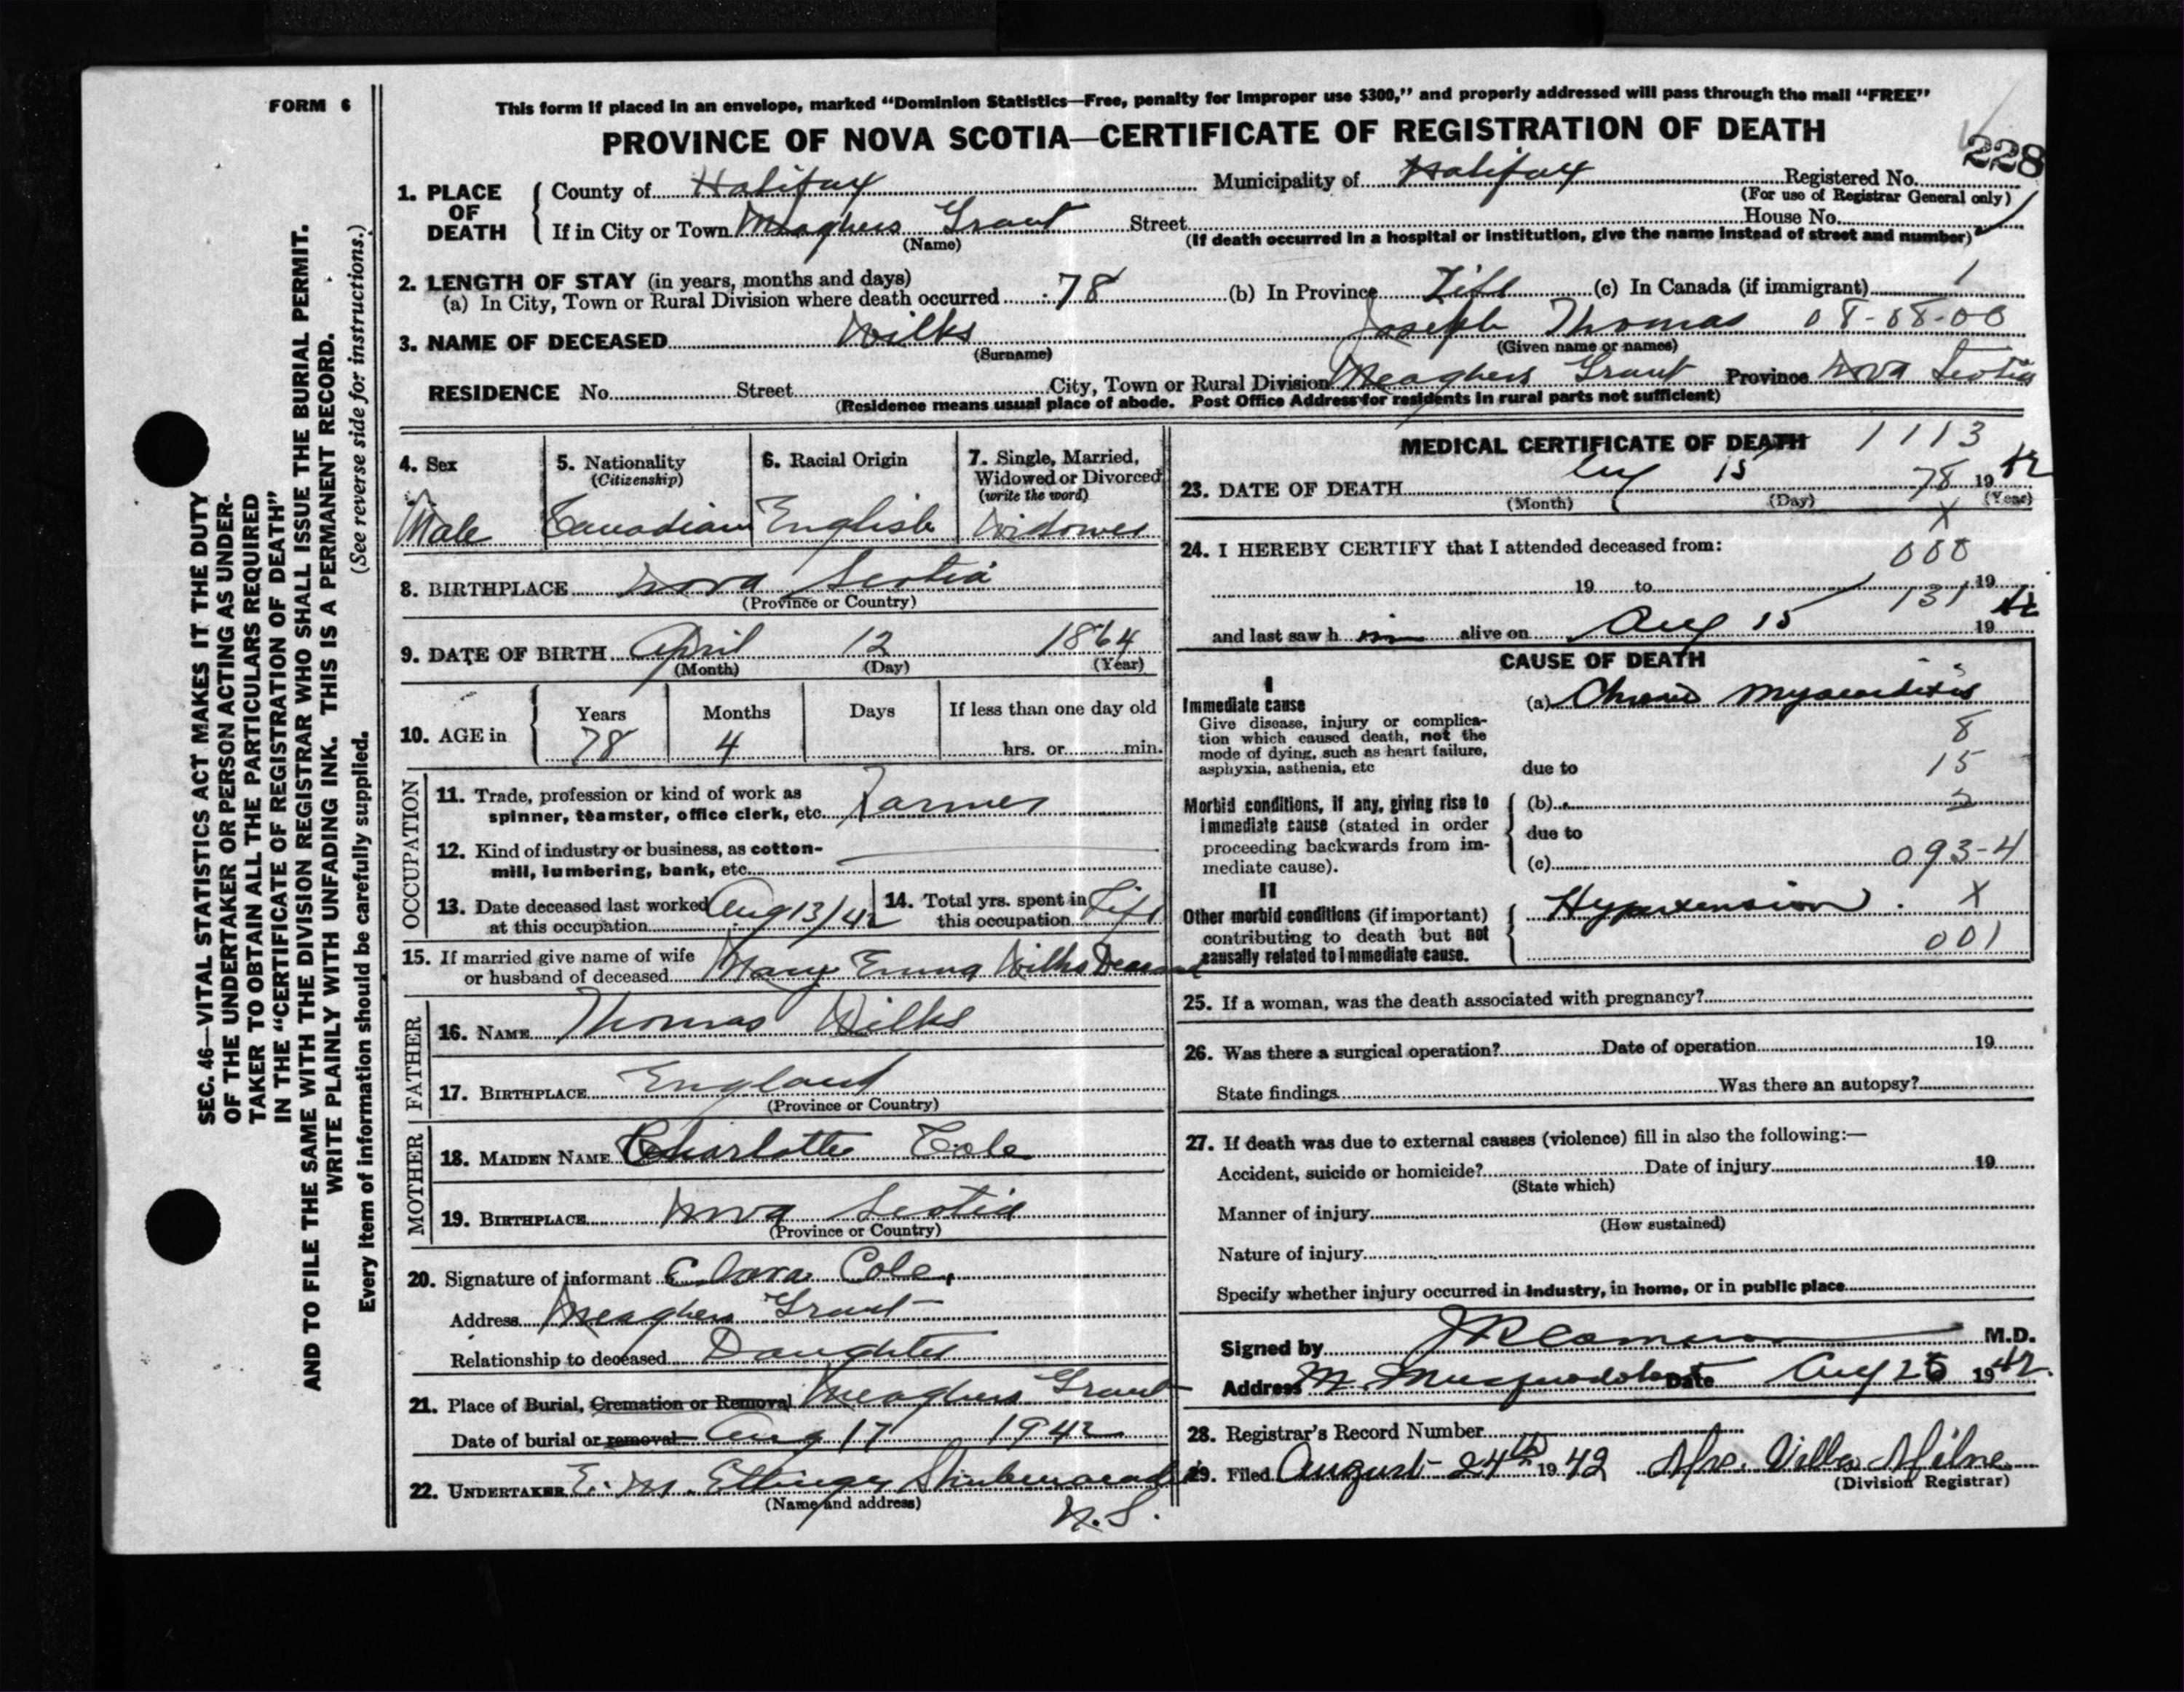 FORM 6
This form if placed in an envelope, marked “Dominion Statistics—Free, penalty for improper use $300,” and properly addressed will pass through the mail “FREE”
PROVINCE OF NOVA SCOTIA—CERTIFICATE OF REGISTRATION OF DEATH
228
1. PLACE OF DEATH County of Halifax Municipality of Halifax Registered No.
(For use of Registrar General only)
If in City or Town Meaghers Grant Street House No.
(Name) (If death occurred in a hospital or institution, give the name instead of street and number)
2. LENGTH OF STAY (in years, months and days)
(a) In City, Town or Rural Division where death occurred 78 (b) In Province Life (c) In Canada (if immigrant) 1
3. NAME OF DECEASED Wilks Joseph Thomas 08-08-00
(Surname) (Given name or names)
RESIDENCE No. Street City, Town or Rural Division Meaghers Grant Province Nova Scotia
(Residence means usual place of abode. Post Office Address for residents in rural parts not sufficient)
4. Sex
Male
5. Nationality
(Citizenship)
Canadian
6. Racial Origin
English
7. Single, Married,
Widowed or Divorced
(write the word)
Widower
8. BIRTHPLACE Nova Scotia
(Province or Country)
9. DATE OF BIRTH April 12 1864
(Month) (Day) (Year)
10. AGE in Years Months Days If less than one day old
78 4 hrs. or min.
OCCUPATION
11. Trade, profession or kind of work as
spinner, teamster, office clerk, etc. Farmer
12. Kind of industry or business, as cotton-
mill, lumbering, bank, etc.
13. Date deceased last worked Aug 13/42
at this occupation
14. Total yrs. spent in
this occupation Life
15. If married give name of wife
or husband of deceased Mary Emma Wilks Deceased
FATHER
16. NAME Thomas Wilks
17. BIRTHPLACE England
(Province or Country)
MOTHER
18. MAIDEN NAME Charlotte Cole
19. BIRTHPLACE Nova Scotia
(Province or Country)
20. Signature of informant Clara Cole
Address Meaghers Grant
Relationship to deceased Daughter
21. Place of Burial, Cremation or Removal Meaghers Grant
Date of burial or removal Aug 17 1942
22. UNDERTAKER E. M. Ettinger Shubenacadie
(Name and address)
N.S.
MEDICAL CERTIFICATE OF DEATH 1113
23. DATE OF DEATH Aug 15 78 1942
(Month) (Day) (Year)
X
24. I HEREBY CERTIFY that I attended deceased from:
000
19 to 19
131
and last saw h im alive on Aug 15 1942
CAUSE OF DEATH
I
Immediate cause
Give disease, injury or complica-
tion which caused death, not the
mode of dying, such as heart failure,
asphyxia, asthenia, etc
(a) Chronic Myocarditis
8
due to 15
Morbid conditions, if any, giving rise to
immediate cause (stated in order
proceeding backwards from im-
mediate cause).
(b)
due to
(c) 093-4
II
Other morbid conditions (if important)
contributing to death but not
causally related to immediate cause.
Hypertension X
001
25. If a woman, was the death associated with pregnancy?
26. Was there a surgical operation? Date of operation 19
State findings Was there an autopsy?
27. If death was due to external causes (violence) fill in also the following:—
Accident, suicide or homicide? Date of injury 19
(State which)
Manner of injury
(How sustained)
Nature of injury
Specify whether injury occurred in industry, in home, or in public place
Signed by J R Cameron M.D.
Address M. Musquodoboit Date Aug 25 1942.
28. Registrar's Record Number
29. Filed August 24th 1942 Mrs. Villa Milne
(Division Registrar)
SEC. 46—VITAL STATISTICS ACT MAKES IT THE DUTY
OF THE UNDERTAKER OR PERSON ACTING AS UNDER-
TAKER TO OBTAIN ALL THE PARTICULARS REQUIRED
IN THE “CERTIFICATE OF REGISTRATION OF DEATH”
AND TO FILE THE SAME WITH THE DIVISION REGISTRAR WHO SHALL ISSUE THE BURIAL PERMIT.
WRITE PLAINLY WITH UNFADING INK. THIS IS A PERMANENT RECORD.
Every item of information should be carefully supplied. (See reverse side for instructions.)